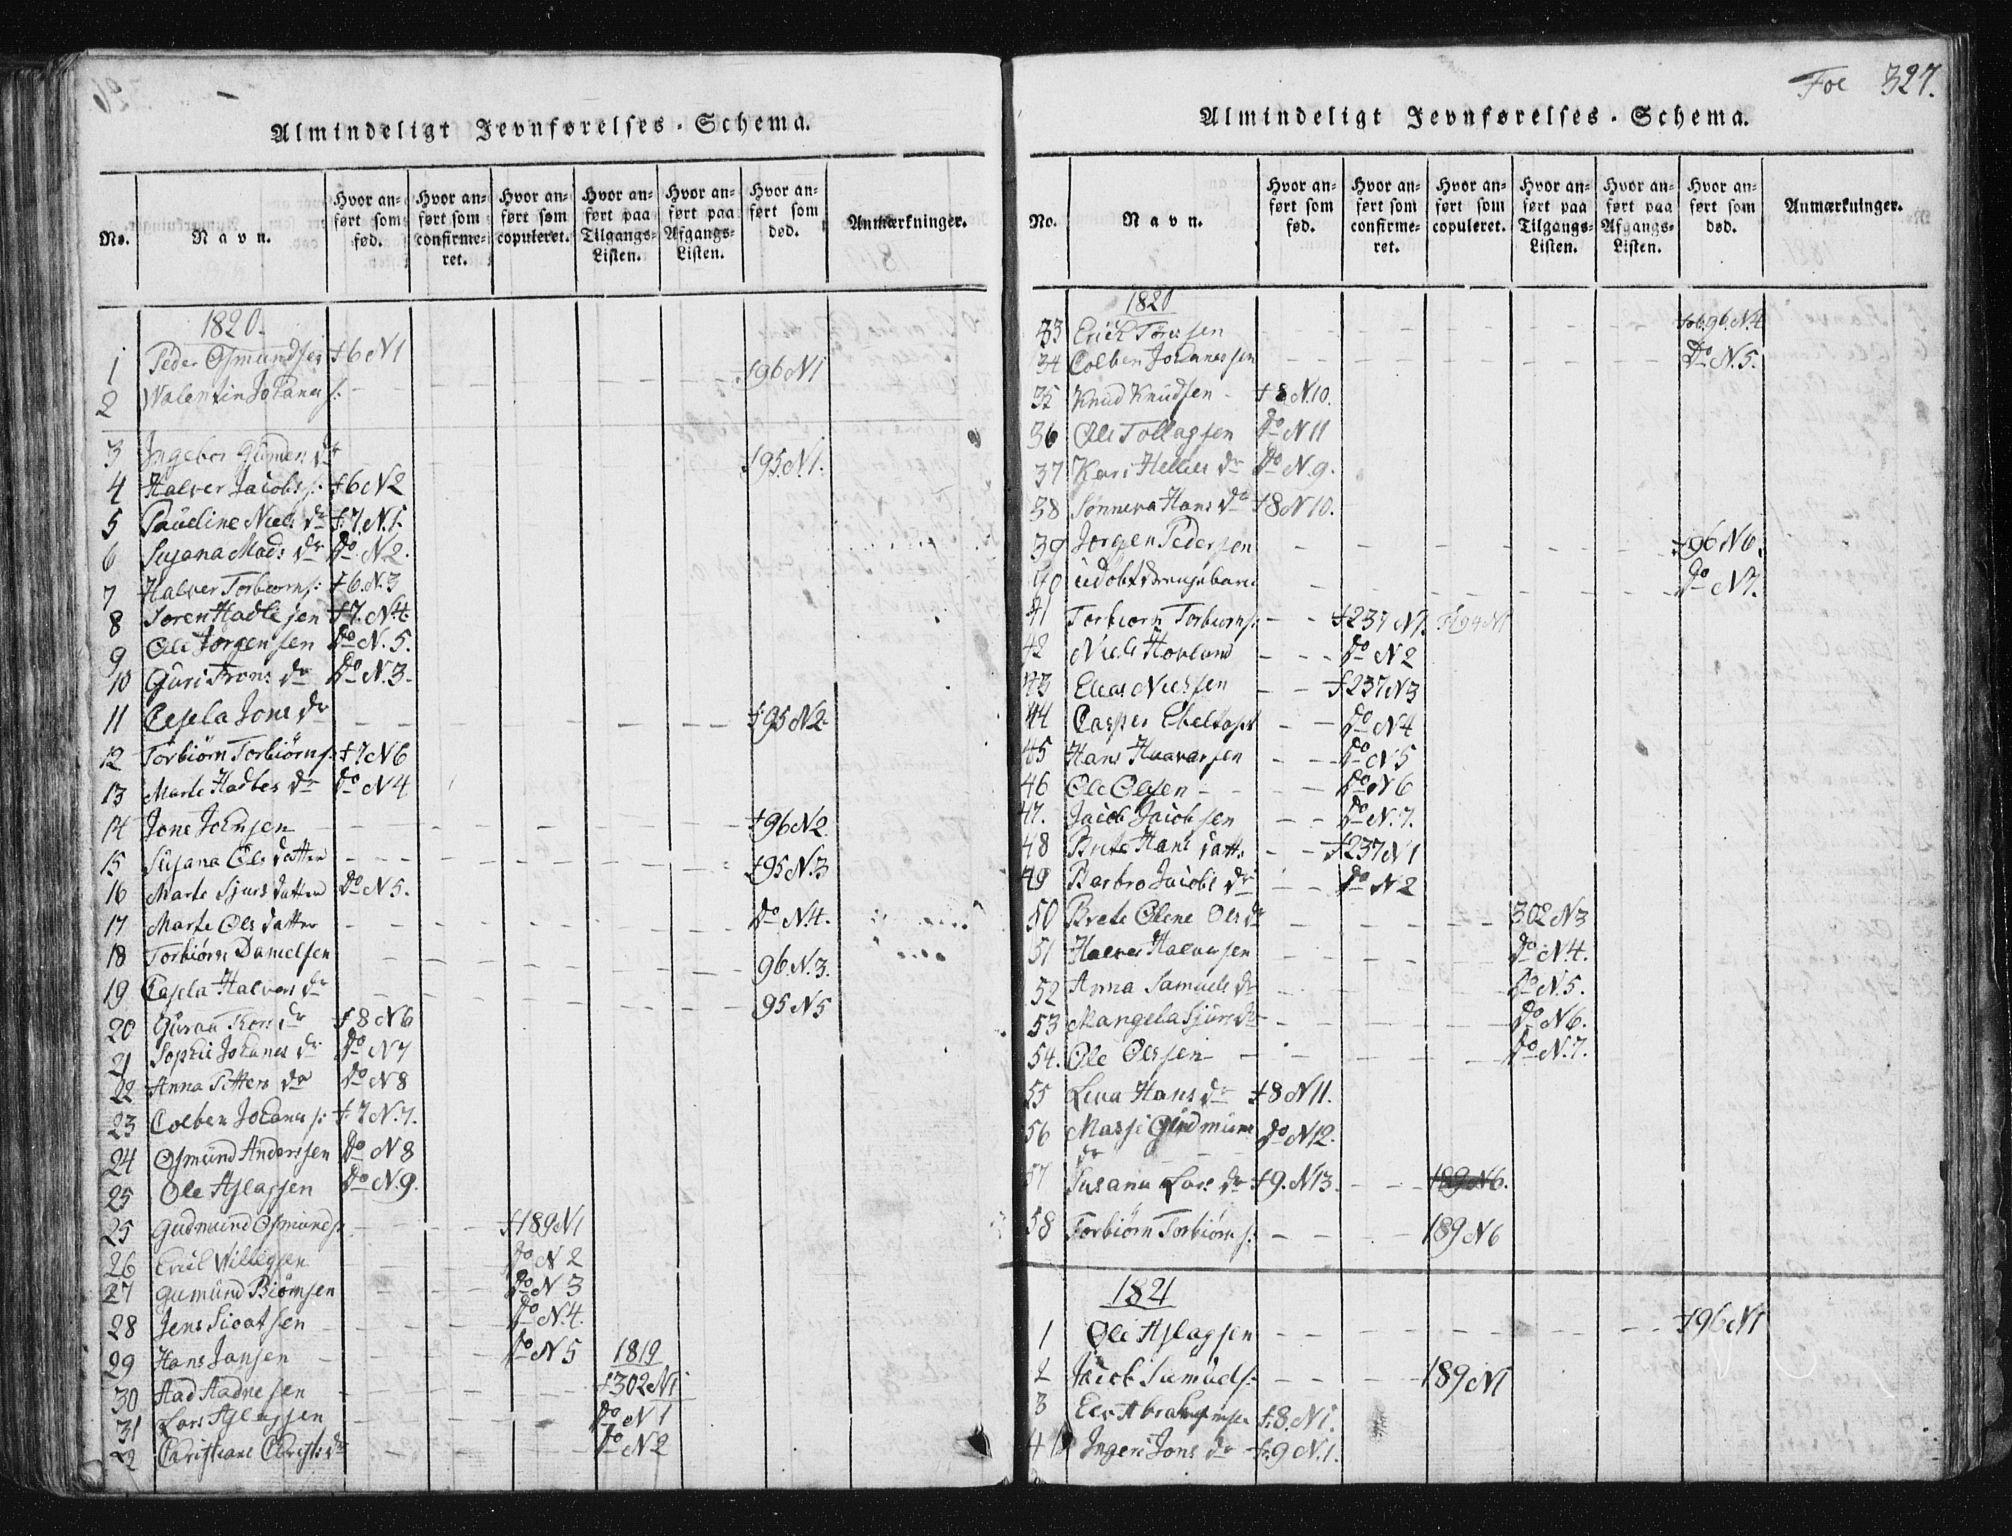 Almindeligt Jevnførelses-Schema.
No.
Navn.
Hvor anført som fød.
Hvor anført som confirmeret.
Hvor anført som copuleret.
Hvor anført paa Tilgangs-Listen.
Hvor anført paa Afgangs-Listen.
Hvor anført som død.
Anmærkninger.
1820.
1 Peder Osmundsen f 6 N 1
2 Valentin Johanes s: f 96 N 1
3 Ingebor dr f 95 N 1.
4 Halver Jacobs s: f 6 N 2
5 Pauline Niels dr f 7. N. 1.
6 Susana Mads dr Do N 2.
7 Halver Torbiorns: f 6. N. 3
8 Soren Hadlesen f 7. N. 4
9 Ole Jorgensen Do N. 5.
10 Guri dr Do N. 3.
11 Cesela Jone dr f 95 N 2
12 Torbiørn Torbiørns: f 7 N 6
13 Marte Hadles dr Do N 4
14 Jone Johnsen f 96 N 2
15 Susana Ols datter f 95 N. 3
16 Marte Sjurs datter Do N 5.
17 Marte Ols datter Do N. 4.
18 Torbiørn Danielsen 96. N. 3.
19 Cesela Halvors dr 95 N 5
20 dr f 8 N 6
21 Sophie Johanes dr Do N 7
22 Anna Petters dr Do N 8
23 Colben Johanes s: f 7 N. 7.
24 Osmund Anderssen Do N 8
25 Ole Aslagsen Do N. 9.
25 Gudmund Osmunds: f 189 N 1
26 Erich Willigsen Do N 2
27 Gumund Biørnsen Do N 3
28 Jens Sivatsen Do N. 4.
29 Hans Jansen Do N 5
1819
30 Aad Aadnesen f 302 N 1
31 Lars Aslagsen Do N 1
Christiane Christs dr Do N 2
Foe 327.
Almindeligt Jevnførelses-Schema.
No.
Navn.
Hvor anført som fød.
Hvor anført som confirmeret.
Hvor anført som copuleret.
Hvor anført paa Tilgangs-Listen.
Hvor anført paa Afgangs-Listen.
Hvor anført som død.
Anmærkninger.
1820
33 Erich Tørressen 96. N. 4
34 Colben Johanessen Do N. 5.
35 Knud Knudsen f 8 N. 10.
36 Ole Tollagsen Do N 11
37 Kari Helles dr Do N. 9.
38 Sonneva Hans dr f 8 N 10.
39 Jorgen Pedersen f 96 N 6.
40 udobt drengebarn Do N 7.
41 Torbiorn Torbiorns: f 237 N 1. f 194 N 1
42 Niels Hovland Do N 2
43 Elias Nielssen f 237 N 3
44 Casper Ebeltoft Do N 4
45 Hans Havarsen Do N 5
46 Ole Olssen Do N 6
47. Jacob Jacobsen Do N. 7.
48 Brete Hans datt: f 237 N 1
49 Barbro Jacobs dr Do N 2
50 Brete Olene Ols dr 302 N 3
51 Halver Halversen Do N. 4.
52 Anna Samuels dr Do N. 5.
53 Mangela Sjurs dr Do N 6.
54. Ole Olssen Do N. 7.
55 Lena Hans dr f 8 N 11.
56 Massi Gudmun dr Do N 12.
57 Susana Lars dr f 9. N 13. 189 N 6.
58 Torbiørn Torbiørns: 189 N 6
1821
1 Ole Aslagsen f 96 N 1
2 Jacob Sumuds: 189 N 1
3 Abrahamsen f. 8. N 1.
4 Ingeri Jons dr f. 9 N. 1.